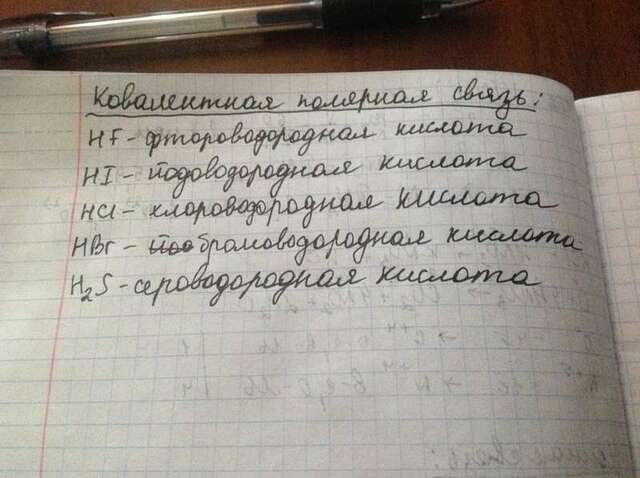 Ковалентная полярная связь:
HF - фтороводородная кислота
HI - йодоводородная кислота
HCl - хлороводородная кислота
HBr - бромоводородная кислота
H₂S - сероводородная кислота